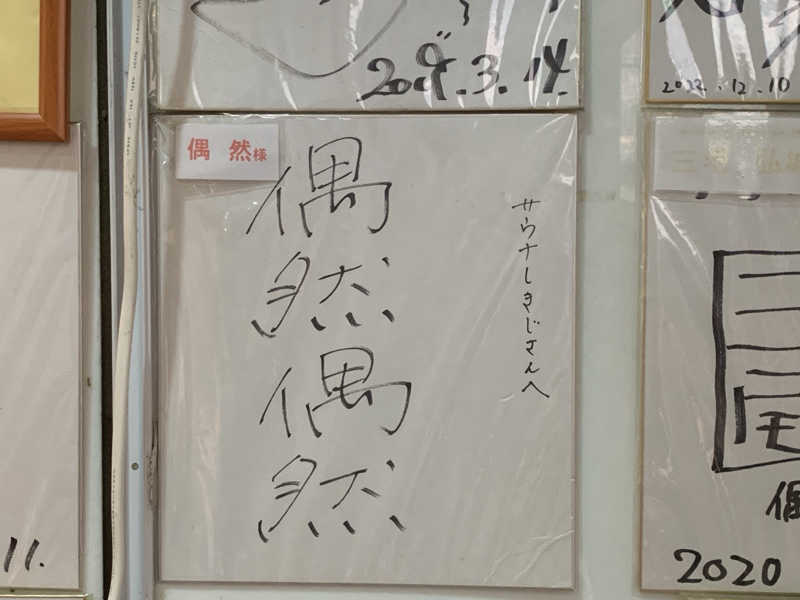 2019.3.14.
2022.12.10
偶然様
偶然偶然
サウナしきじさんへ
11.
偶
2020